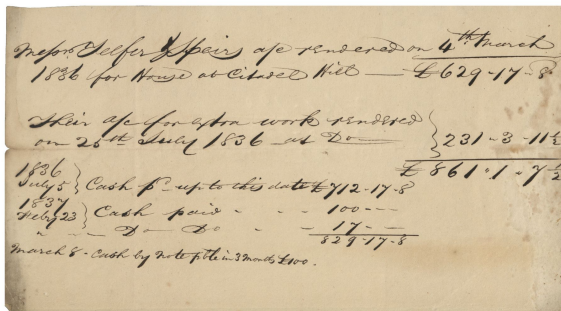 Messrs Telfer & Speirs a/c rendered on 4th March
1836 for House at Citadel Hill — £629-17-8
Their a/c for extra work rendered
on 25th July 1836 at Do — } 231-3-11½
£861"1"7½
1836
July 5 } Cash pd up to this date £712-17-8
1837
Feby 23 } Cash paid - - 100 - -
" - Do Do - - 17 - -
829-17-8
March 8 - Cash by note pble in 3 months £100.